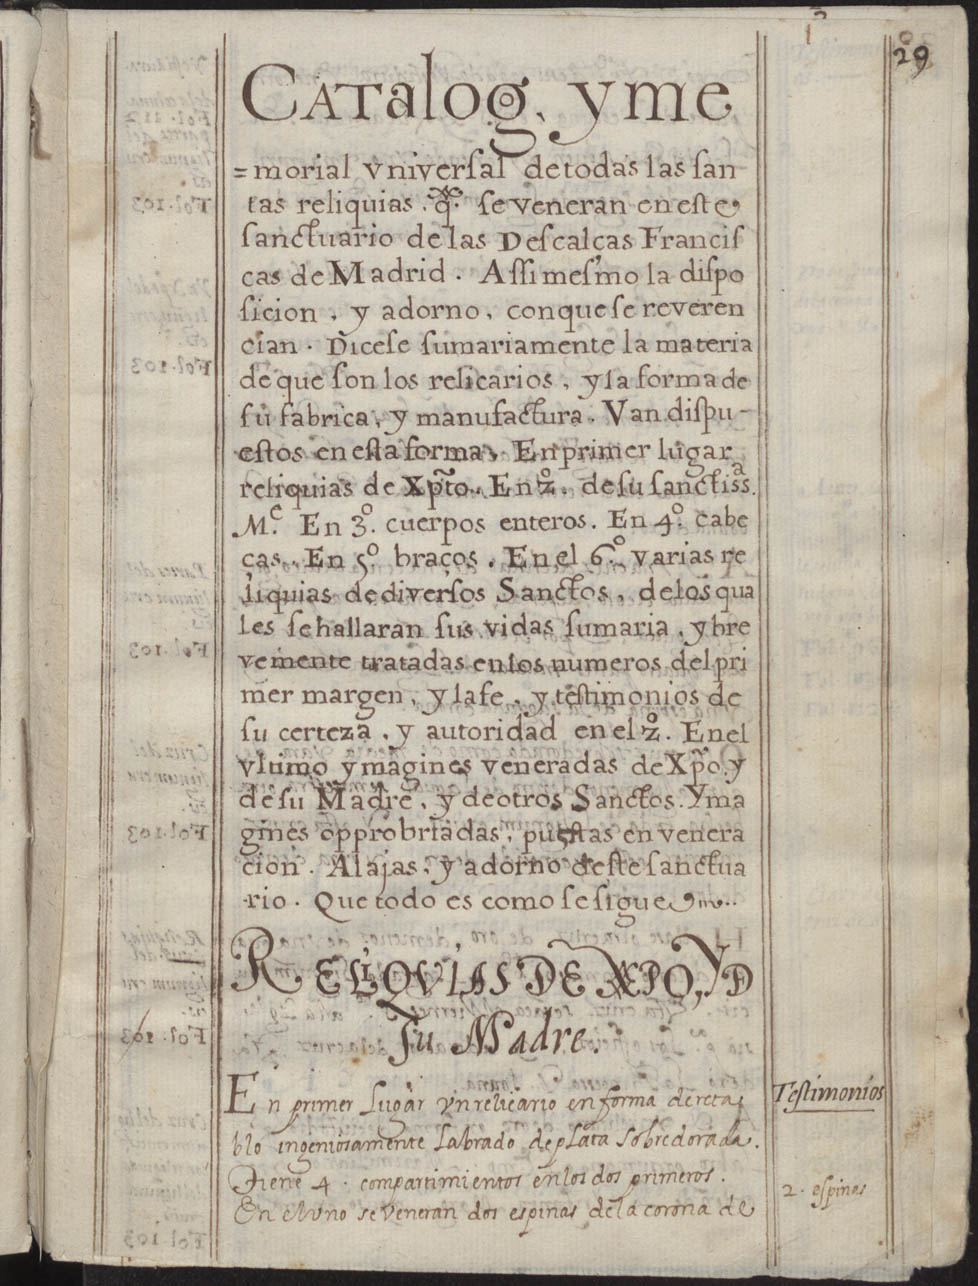 29
CATalogo, y me
=morial vniversal de todas las san-
tas reliquias. q̃. se veneran en este
sanctuario de las Descalças Francis
cas de Madrid. Assimesmo la dispo
sicion, y adorno, conque se reveren
cian. Dicese sumariamente la materia
de que son los relicarios, y la forma de
su fabrica, y manufactura. Van dispu-
estos en esta forma. En primer lugar
reliquias de Xp̃to. En 2º. de su sanctissª.
Mᵉ. En 3º. cuerpos enteros. En 4º. cabe
ças. En 5º. braços. En el 6º. varias re
liquias de diversos Sanctos, de los qua
les se hallaran sus vidas sumaria, y bre
vemente tratadas en los numeros del pri
mer margen, y la fe, y testimonios de
su certeza, y autoridad en el 2º. En el
vltimo ymagines veneradas de Xp̃o. y
de su Madre, y de otros Sanctos. Yma
gines opprobriadas, puestas en venera
cion. Alajas, y adorno deste sanctua
rio. Que todo es como se sigue
RELIQVIAS DE XPO, Y D
su Madre.
En primer lugar vn relicario en forma de reta
blo ingeniosamente labrado de plata sobredorada.
Tiene 4. compartimientos en los dos primeros.
En el vno se veneran dos espinas de la corona de
Testimonios
2. espinas